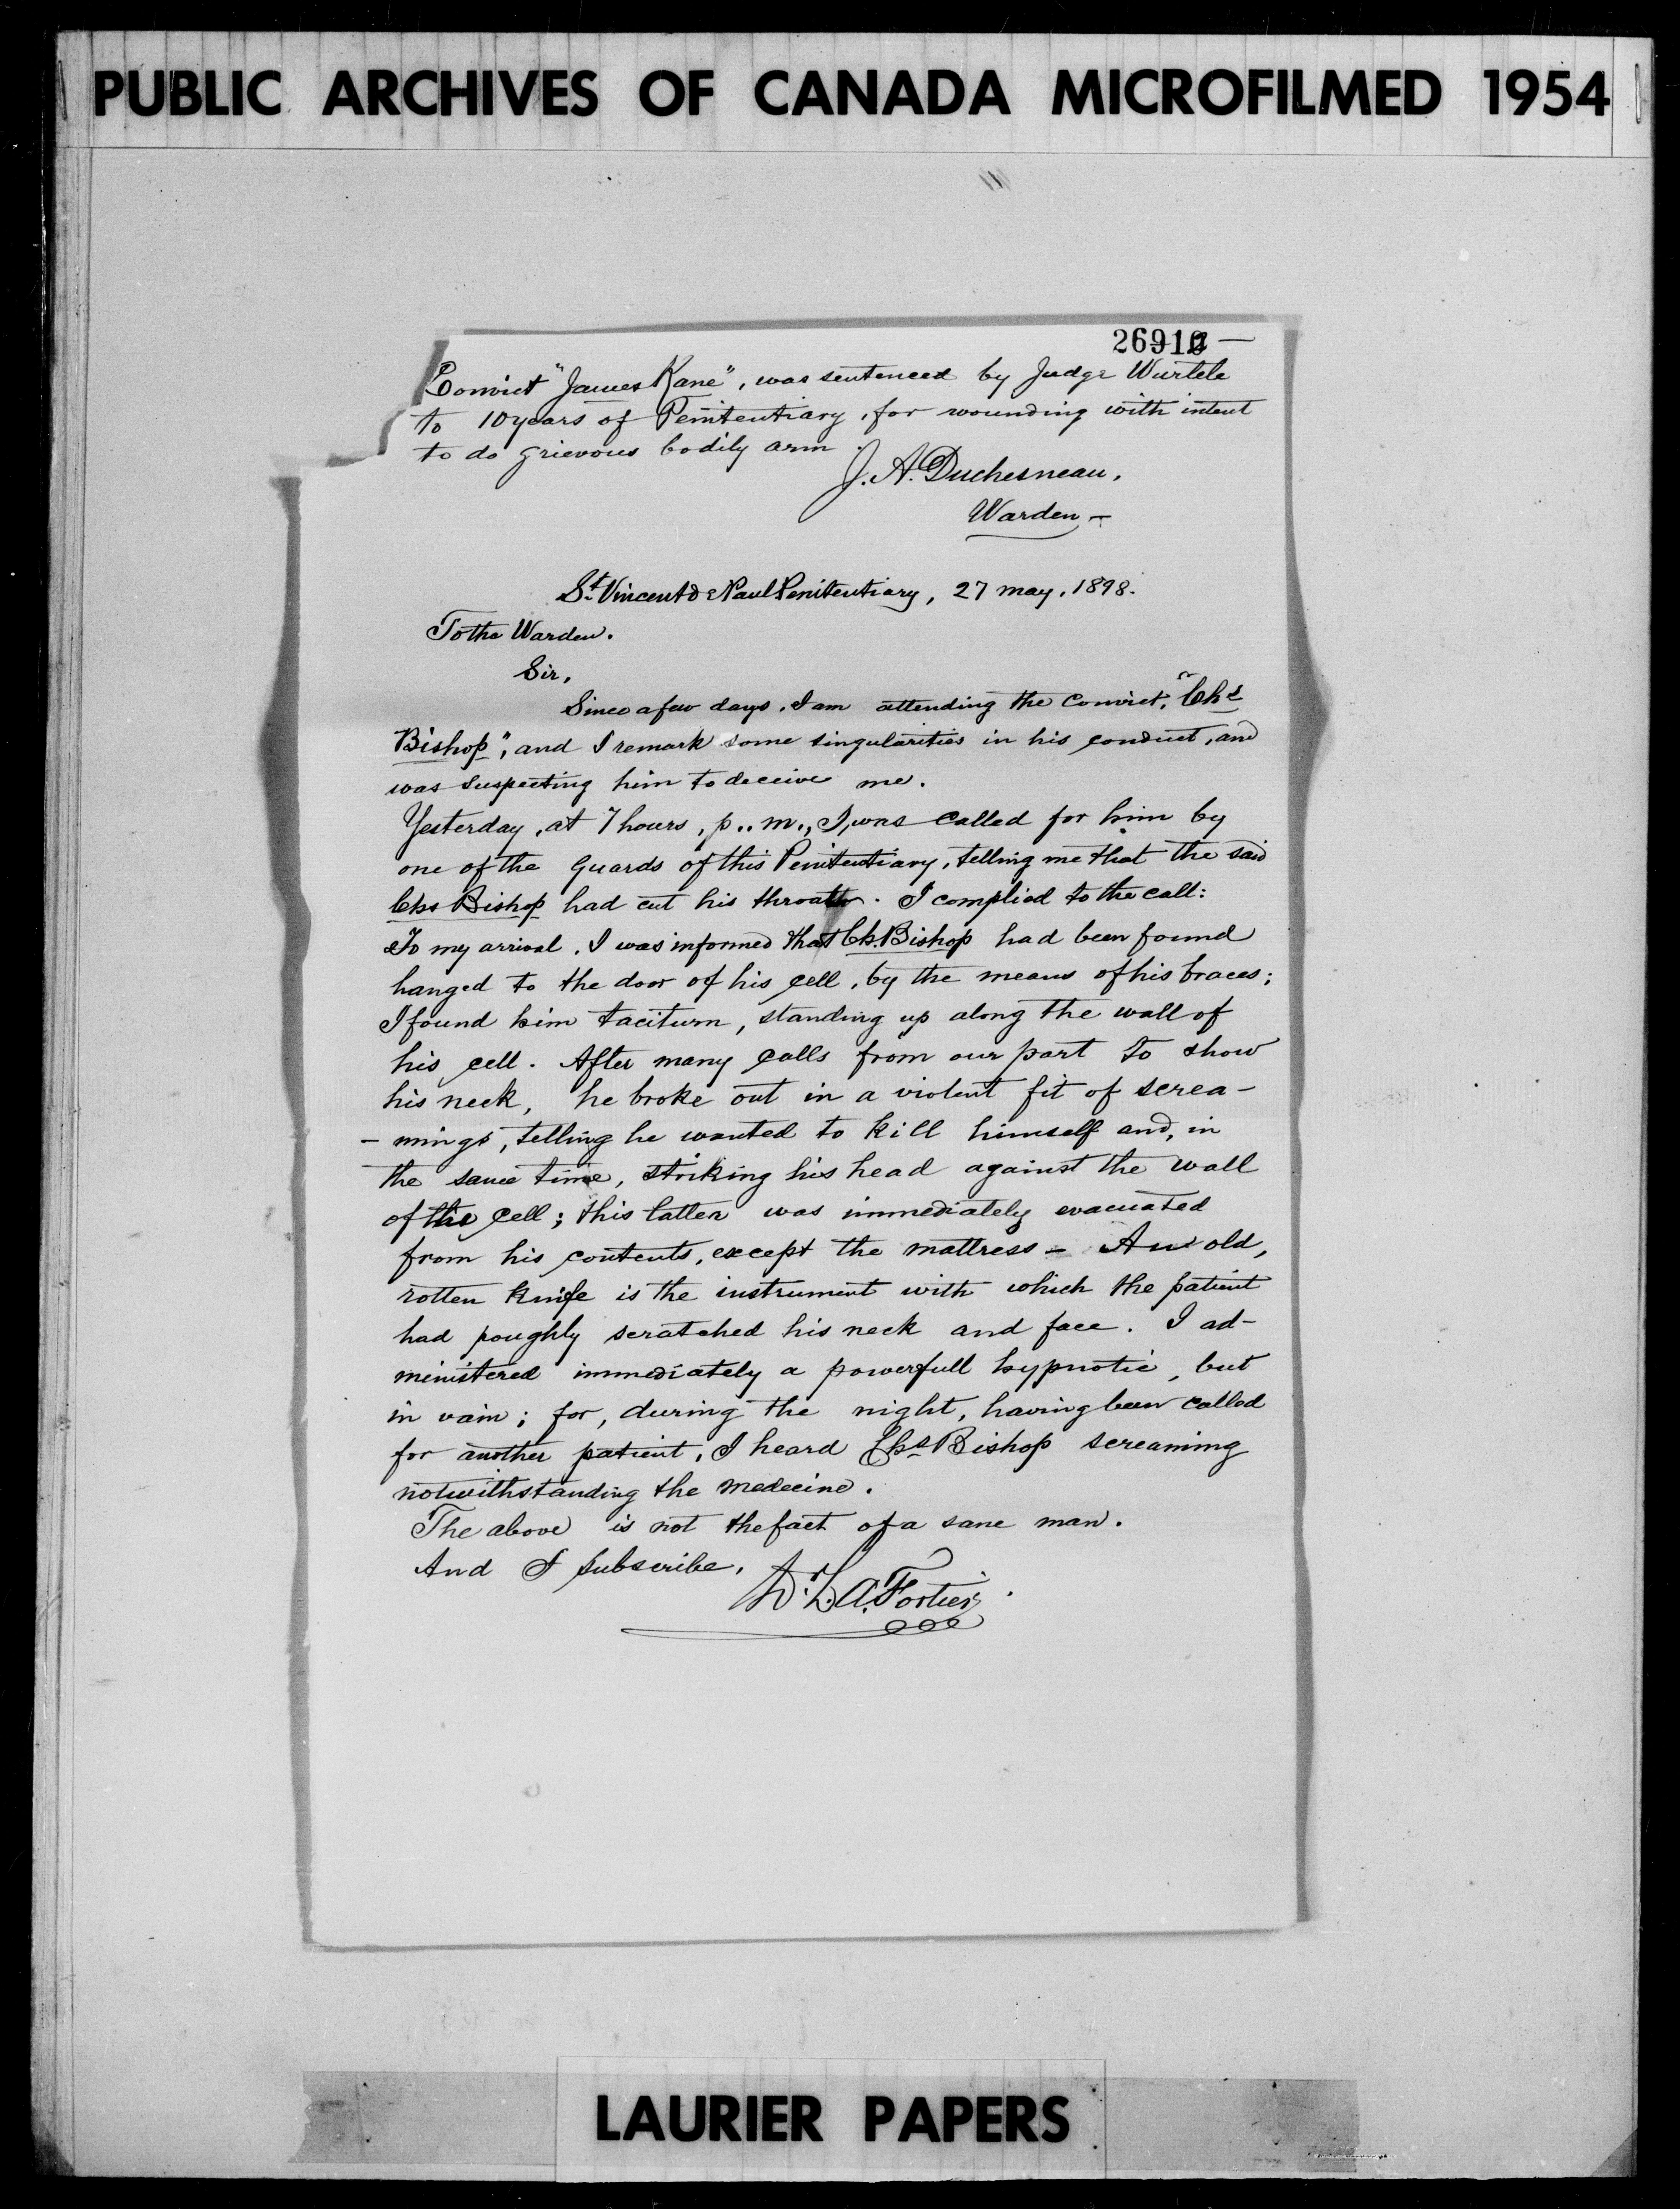 PUBLIC ARCHIVES OF CANADA MICROFILMED 1954
Convict "James Kane", was sentenced by Judge Wurtele
to 10 years of Penitentiary, for wounding with intent
to do grievous bodily arm.
J. A. Duchesneau,
Warden —
St. Vincent de Paul Penitentiary, 27 may, 1898.
To the Warden.
Sir,
Since a few days, I am attending the Convict, "Chs
Bishop", and I remark some singularities in his conduct, and
was suspecting him to deceive me.
Yesterday, at 7 hours, p..m., I, was called for him by
one of the guards of this Penitentiary, telling me that the said
Chs Bishop had cut his throath. I complied to the call:
To my arrival, I was informed that Ch. Bishop had been found
hanged to the door of his cell, by the means of his braces;
I found him taciturn, standing up along the wall of
his cell. After many calls from our part to show
his neck, he broke out in a violent fit of screa-
- mings, telling he wanted to kill himself and, in
the same time, striking his head against the wall
of the cell; this latter was immediately evacuated
from his contents, except the mattress — An old,
rotten knife is the instrument with which the patient
had roughly scratched his neck and face. I ad-
ministered immediately a powerfull hypnotic, but
in vain; for, during the night, having been called
for another patient, I heard Chs Bishop screaming
notwithstanding the medecine.
The above is not the fact of a sane man.
And I subscribe,
Dr. L. A. Fortier.
LAURIER PAPERS